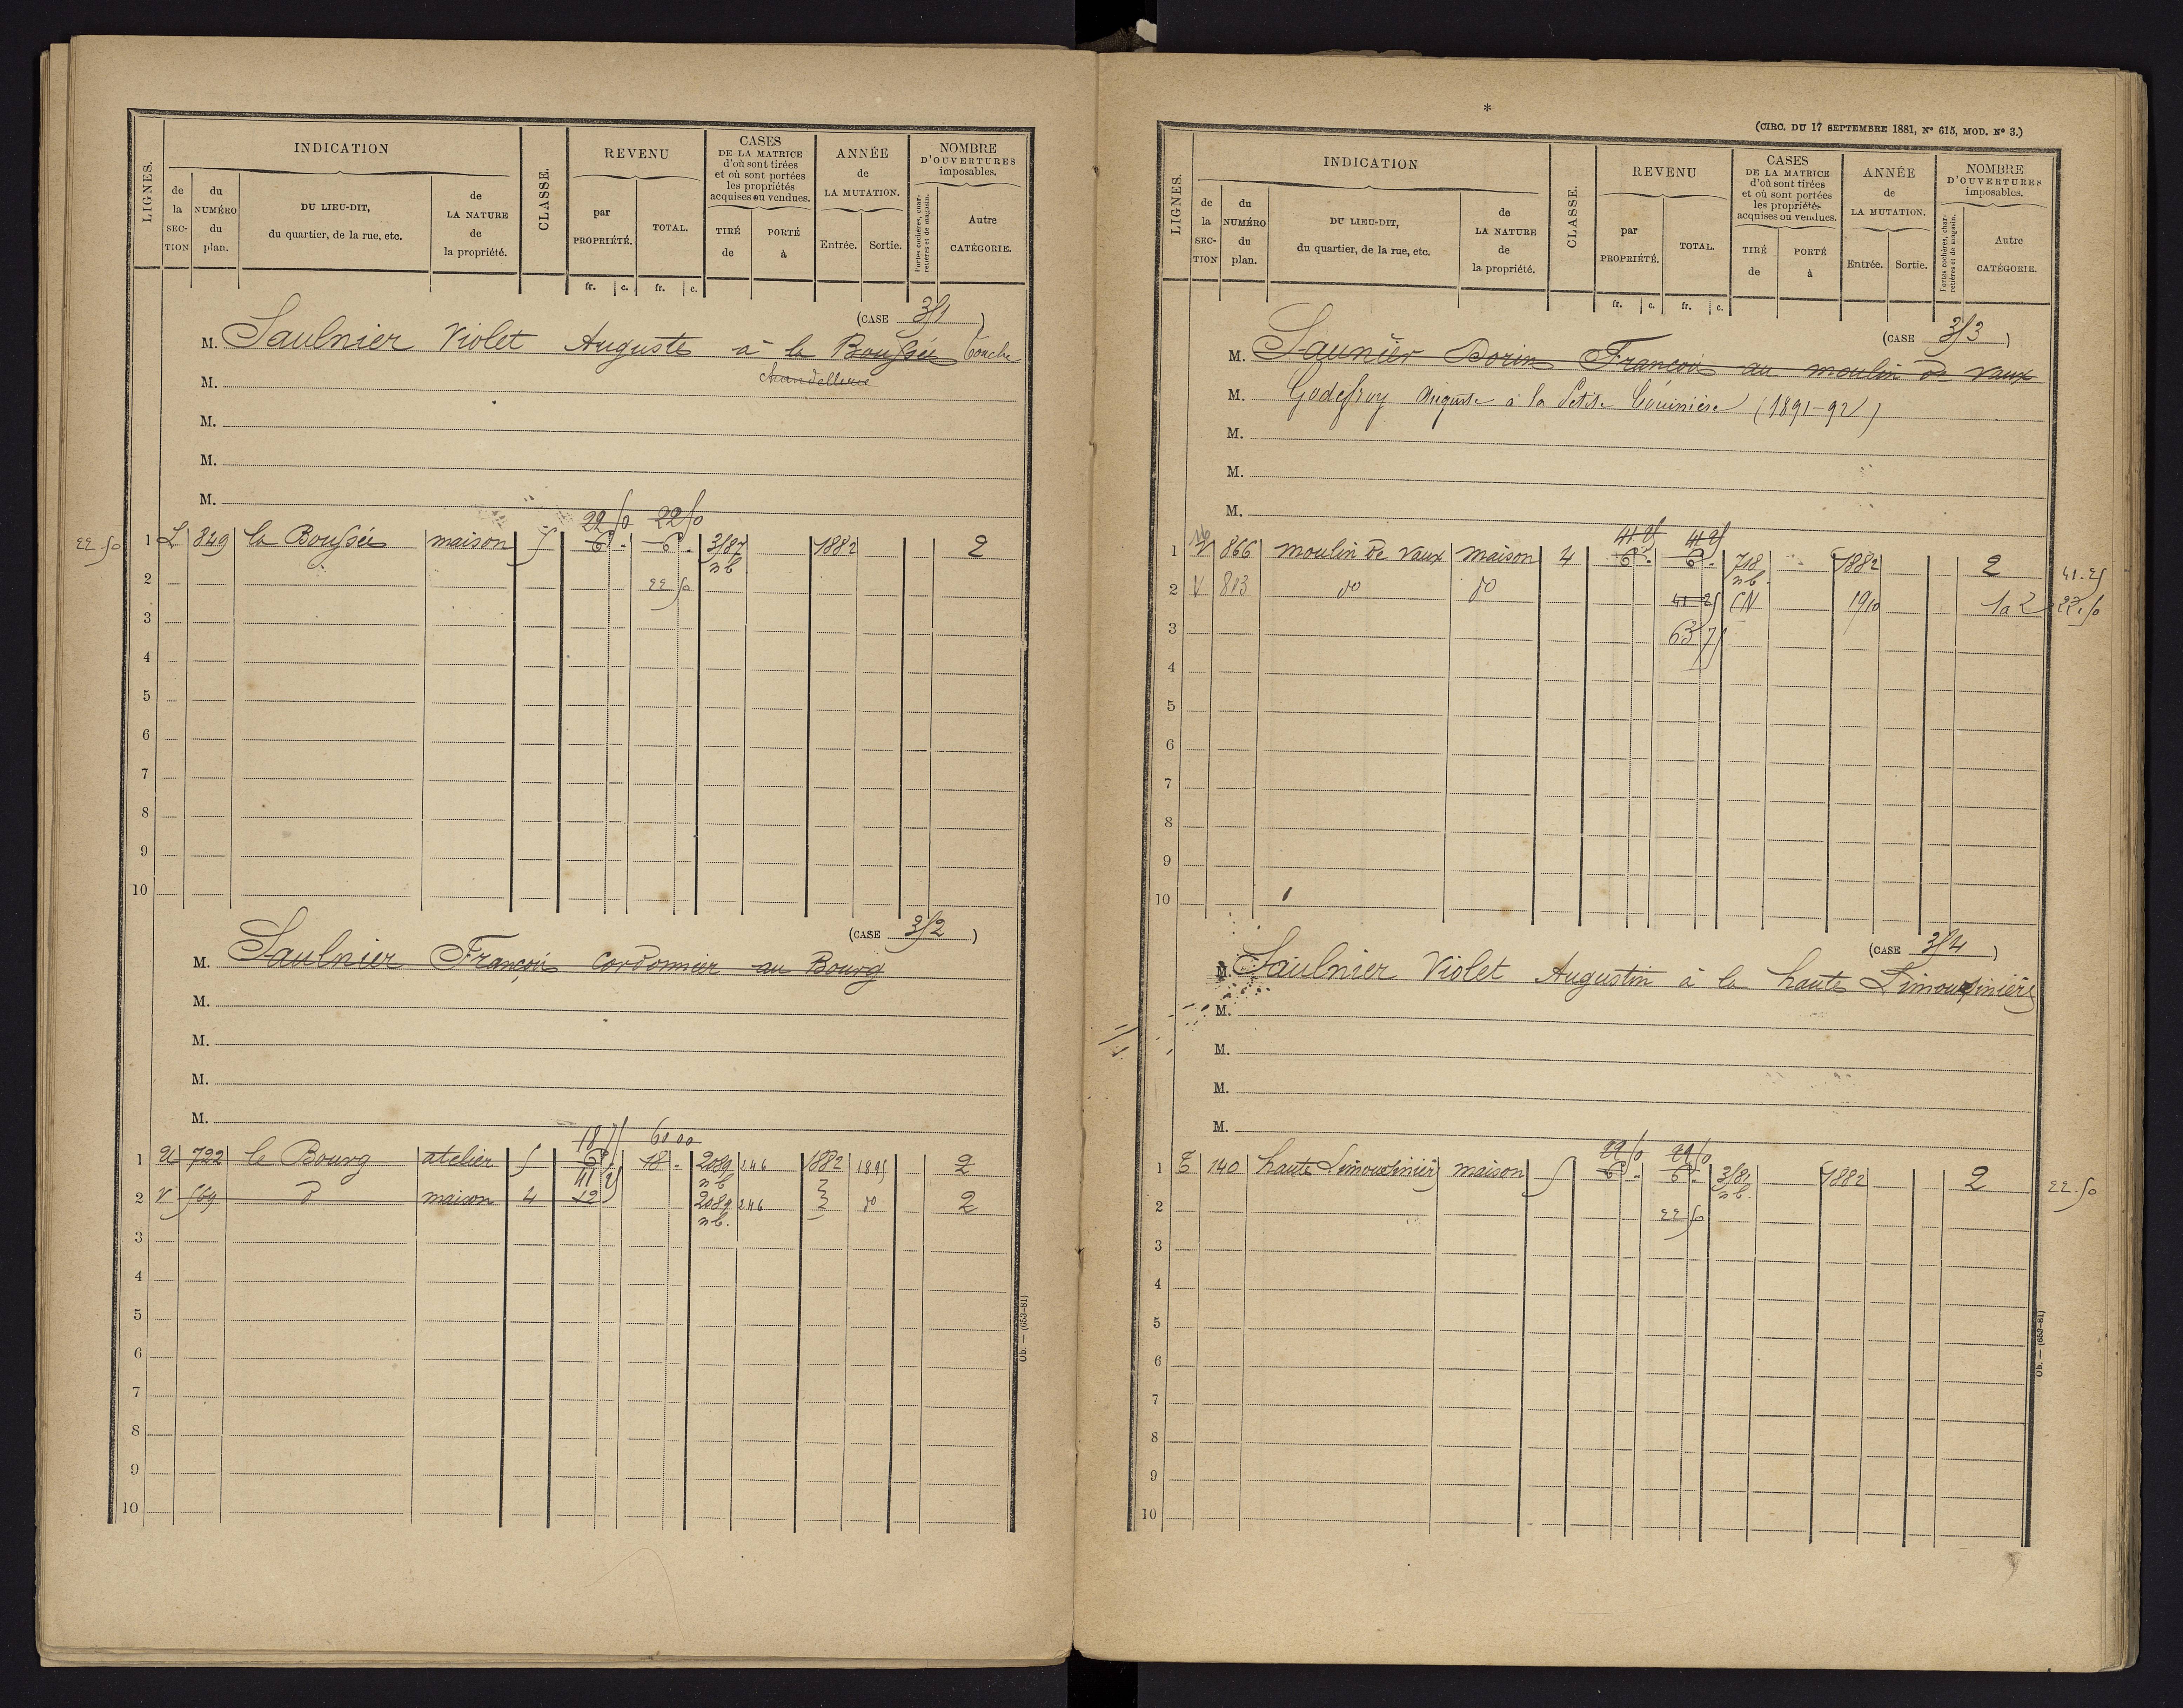 LIGNES.
INDICATION
de la SECTION
du NUMÉRO du plan.
DU LIEU-DIT, du quartier, de la rue, etc.
de LA NATURE de la propriété.
CLASSE.
REVENU
par PROPRIÉTÉ.
TOTAL.
fr. c. fr. c.
CASES DE LA MATRICE d'où sont tirées et où sont portées les propriétés acquises ou vendues.
TIRÉ de
PORTÉ à
ANNÉE de LA MUTATION.
Entrée. Sortie.
NOMBRE D'OUVERTURES imposables.
Portes cochères, charretières et de magasin.
Autre CATÉGORIE.
(CASE 351)
M. Saulnier Violet Auguste à la Boussée Touche
chandellerie
M.
M.
M.
M.
22 50 22 50
22.50 1 L 849 la Boussée maison 5 6 . 6 . 3587 nb 1882 2
2 22 50
3
4
5
6
7
8
9
10
(CASE 352)
M. Saulnier François Cordonnier au Bourg
M.
M.
M.
M.
18 75 60 00
1 U 722 le Bourg atelier 5 6 . 18 . 2089 nb 246 1882 1895 2
41 25
2 V 569 d maison 4 12 2089 nb. 246 do 2
3
4
5
6
7
8
9
10
Ob. — (653-81)
*
(CIRC. DU 17 SEPTEMBRE 1881, N° 615, MOD. N° 3.)
LIGNES.
INDICATION
de la SECTION
du NUMÉRO du plan.
DU LIEU-DIT, du quartier, de la rue, etc.
de LA NATURE de la propriété.
CLASSE.
REVENU
par PROPRIÉTÉ.
TOTAL.
fr. c. fr. c.
CASES DE LA MATRICE d'où sont tirées et où sont portées les propriétés acquises ou vendues.
TIRÉ de
PORTÉ à
ANNÉE de LA MUTATION.
Entrée. Sortie.
NOMBRE D'OUVERTURES imposables.
Portes cochères, charretières et de magasin.
Autre CATÉGORIE.
(CASE 353)
M. Saunier Dorin François au moulin de Vaux
M. Godefroy Auguste à la Petite (1891-92)
M.
M.
M.
41 25 41 25
1 V 866 moulin de Vaux maison 4 6 . 6 . 718 nb. 1882 2 41.25
2 V 813 do do 41 25 CN 1910 1a2 22.50
3 63 75
4
5
6
7
8
9
10
(CASE 354)
M. Saulnier Violet Augustin à la haute Limousinière
M.
M.
M.
M.
22 50 22 50
1 E 140 haute Limousinière maison 5 6 . 6 . 3581 nb. 1882 2 22.50
2 22 50
3
4
5
6
7
8
9
10
Ob. — (653-81)